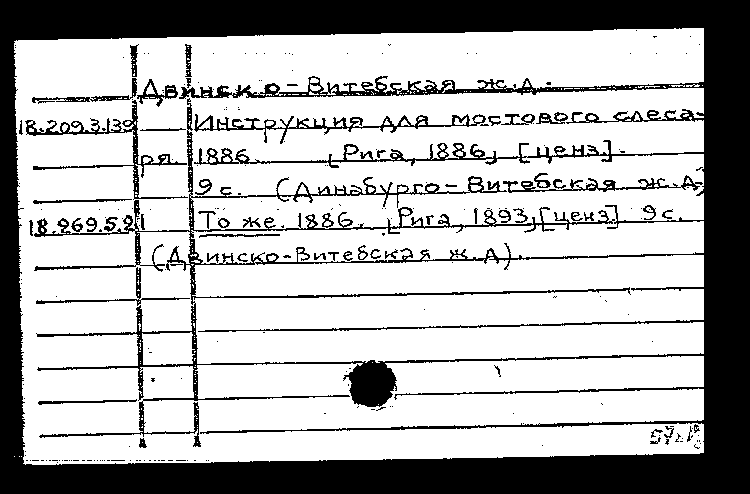 Двинско-Витебская ж.д.
18.209.3.139 Инструкция для мостового слеса-
ря. 1886. [Рига, 1886] [ценз].
9 с. (Динабурго-Витебская ж.д.)
18.269.5.21 То же. 1886. [Рига, 1893] [ценз] 9 с.
(Двинско-Витебская ж.д).